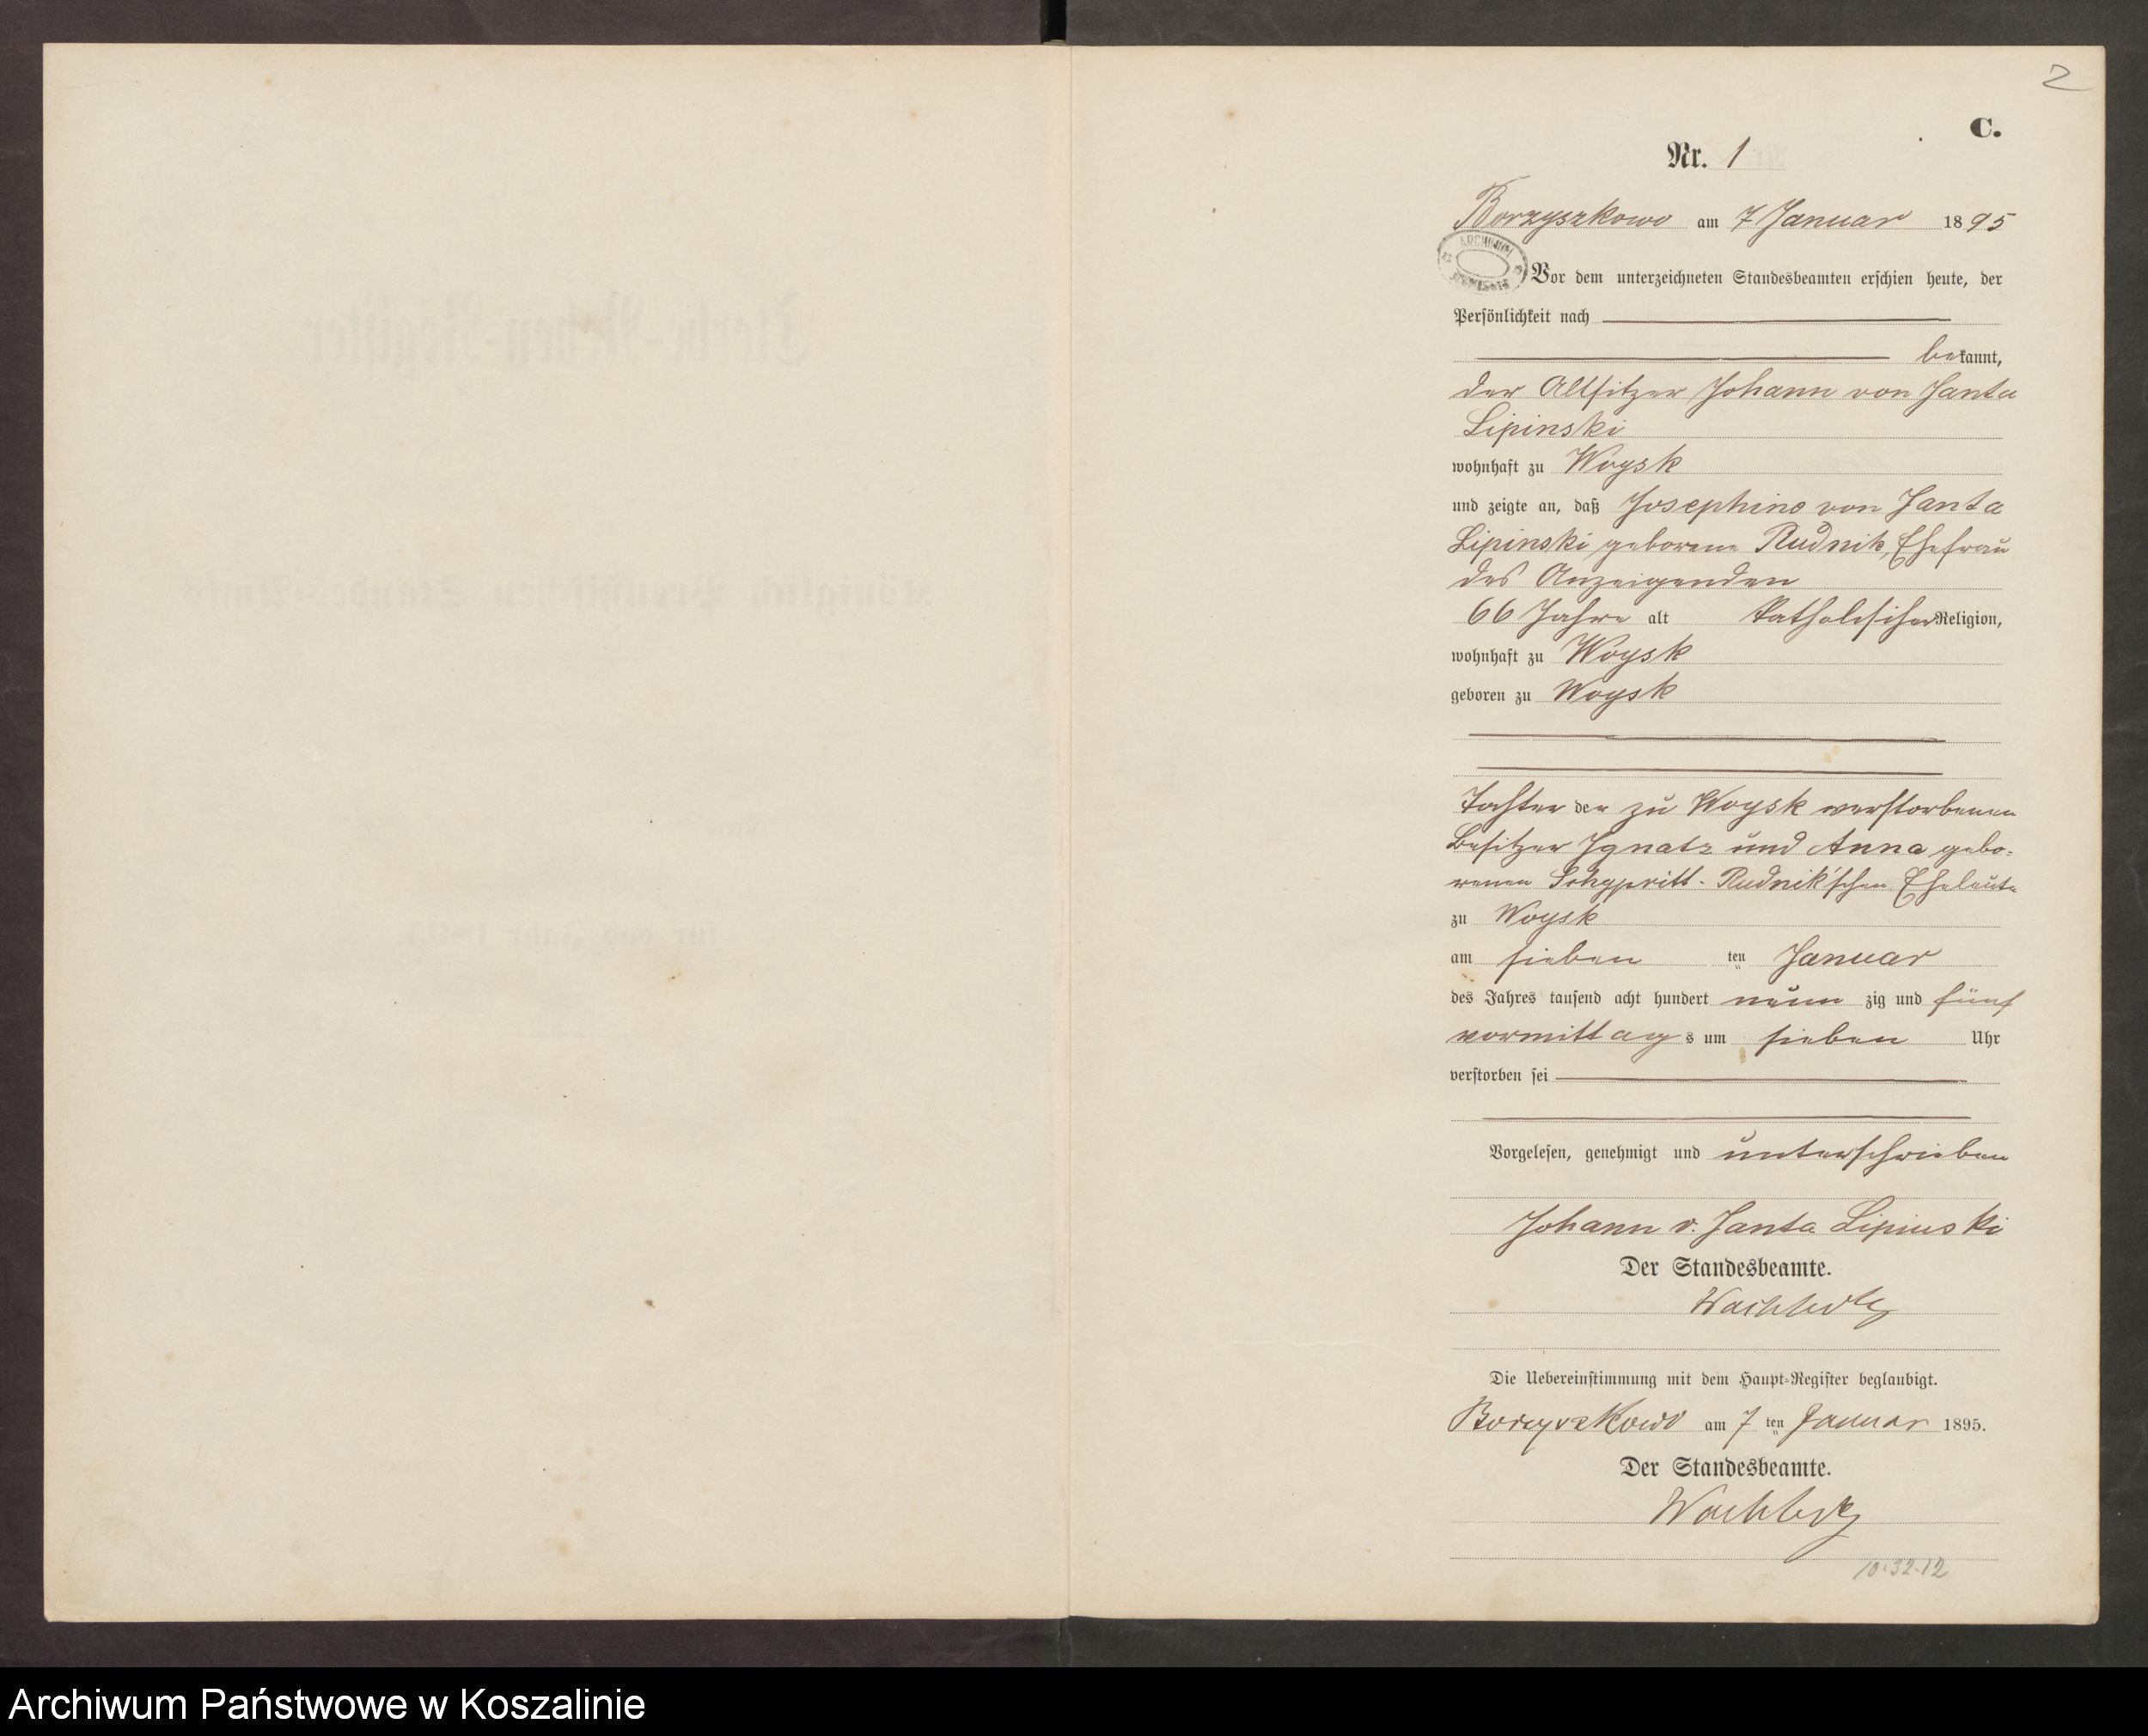 2
C.
Nr. 1
Borzyszkowo am 7 Januar 1895
ARCHIWUM
Vor dem unterzeichneten Standesbeamten erschien heute, der
Persönlichkeit nach
bekannt,
der Altsitzer Johann von Janta
Lipinski
wohnhaft zu Woysk
und zeigte an, daß Josephine von Janta
Lipinski, geborene Rudnik, Ehefrau
des Anzeigenden
66 Jahre alt katholischer Religion,
wohnhaft zu Woysk
geboren zu Woysk
Tochter der zu Woysk verstorbenen
Besitzer Ignatz und Anna gebo-
renen Rudnik'schen Eheleute
zu Woysk
am sieben ten Januar
des Jahres tausend acht hundert neun zig und fünf
vormittags um sieben Uhr
verstorben sei
Vorgelesen, genehmigt und unterschrieben
Johann v. Janta Lipinski
Der Standesbeamte.
Die Uebereinstimmung mit dem Haupt-Register beglaubigt.
Borzyszkowo am 7 ten Januar 1895.
Der Standesbeamte.
10.32.12
Archiwum Państwowe w Koszalinie